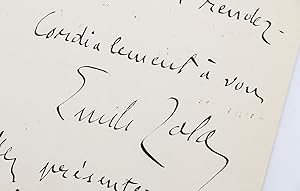 rendez-
Cordialement à vou
Emile Zola
présente